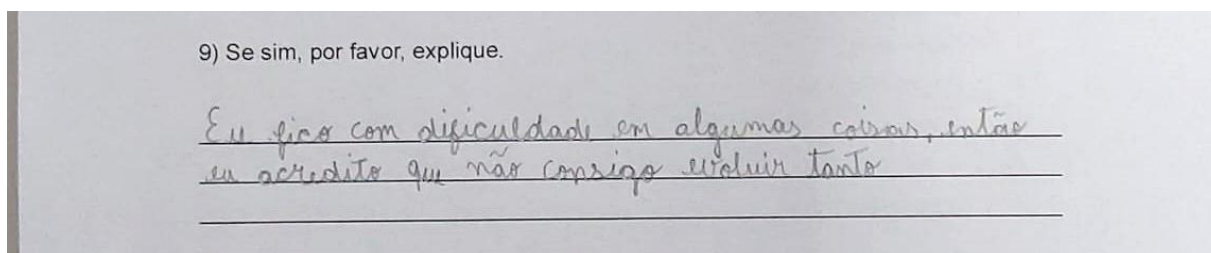 9) Se sim, por favor, explique.
Eu fico com dificuldade em algumas coisas, então
eu acredito que não consigo evoluir tanto